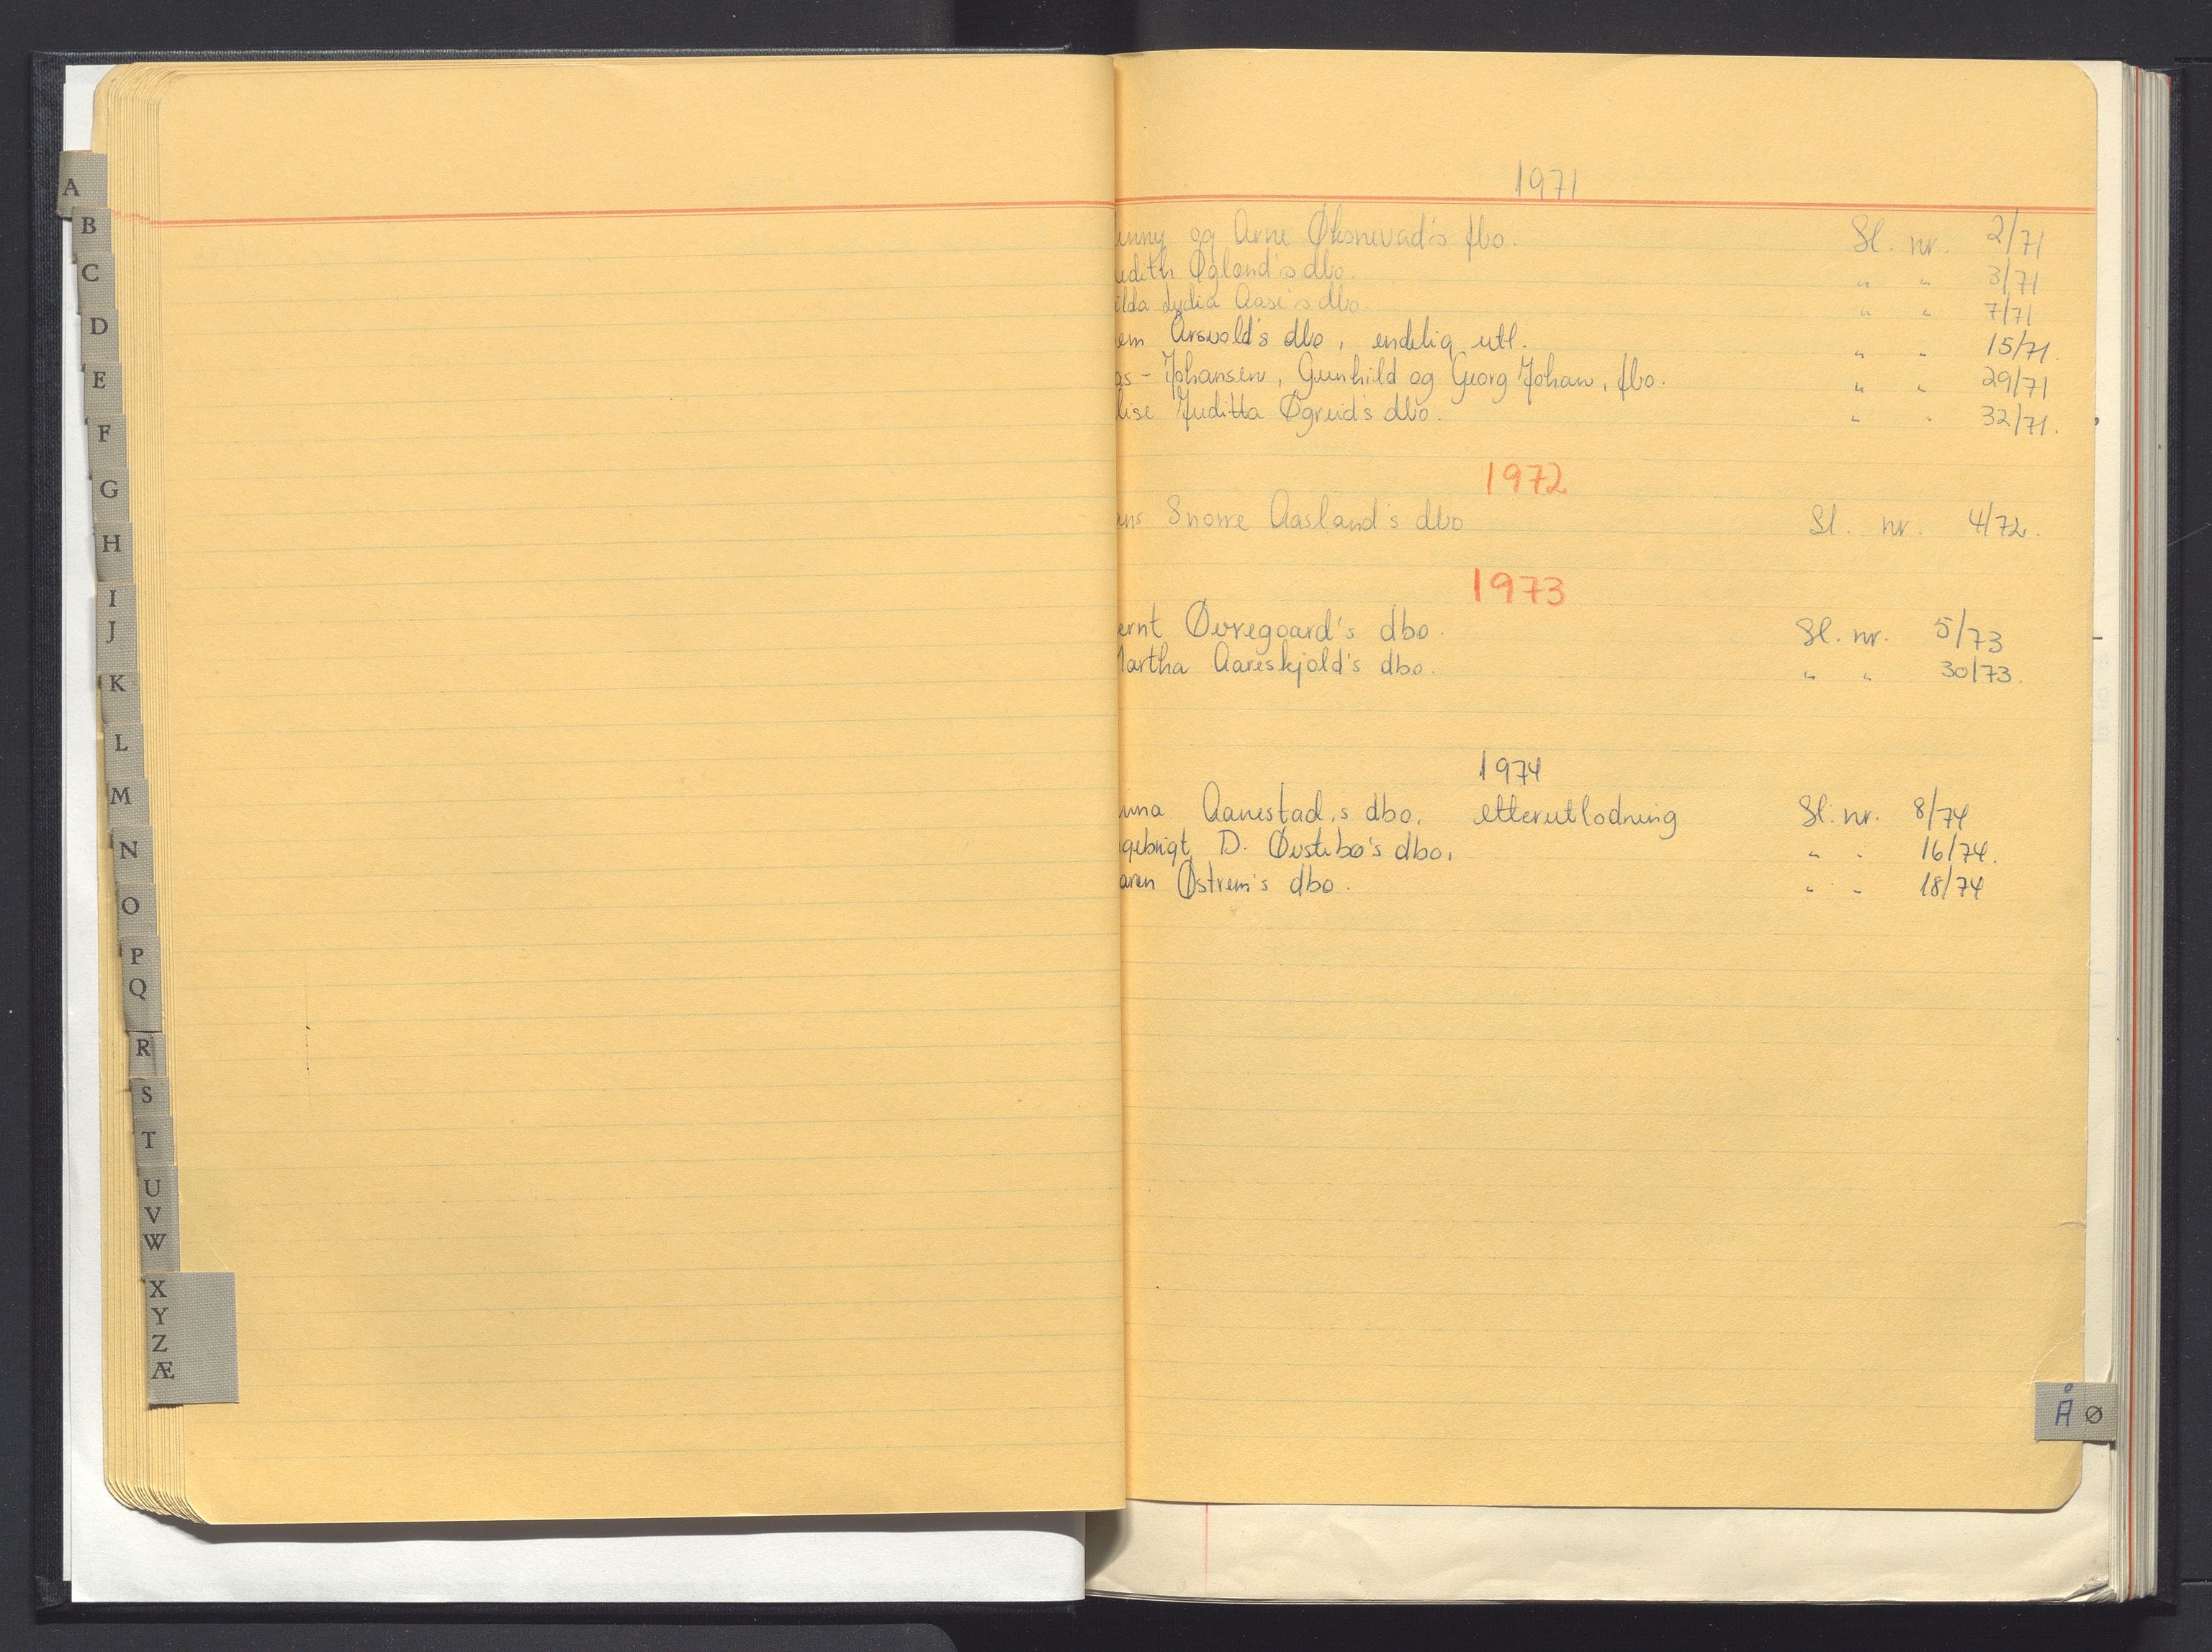 A
B
C
D
E
F
G
H
I
J
K
L
M
N
O
P
Q
R
S
T
U
V
W
X
Y
Z
Æ
1971
og Arne Øksnevad's fbo. Sl. nr. 2/71
Øgland's dbo. " " 3/71
Lydia Aase's dbo. " " 7/71
Arsvold's dbo, endelig utl. " " 15/71.
- Johansen, Gunhild og Georg Johan, fbo. " " 29/71
Juditta Øgreid's dbo. " " 32/71.
1972
Snorre Aasland's dbo Sl. nr. 4/72.
1973
ernt Øvregaard's dbo. Sl. nr. 5/73
Martha Aareskjold's dbo. " " 30/73.
1974
Aanestad,s dbo, etterutlodning Sl. nr. 8/74
gebrigt D. Øvstebø's dbo, " " 16/74.
aren Østrem's dbo. " " 18/74
Å Ø